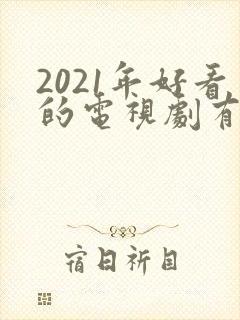 2021年好看
的電視劇有
宿日祈目